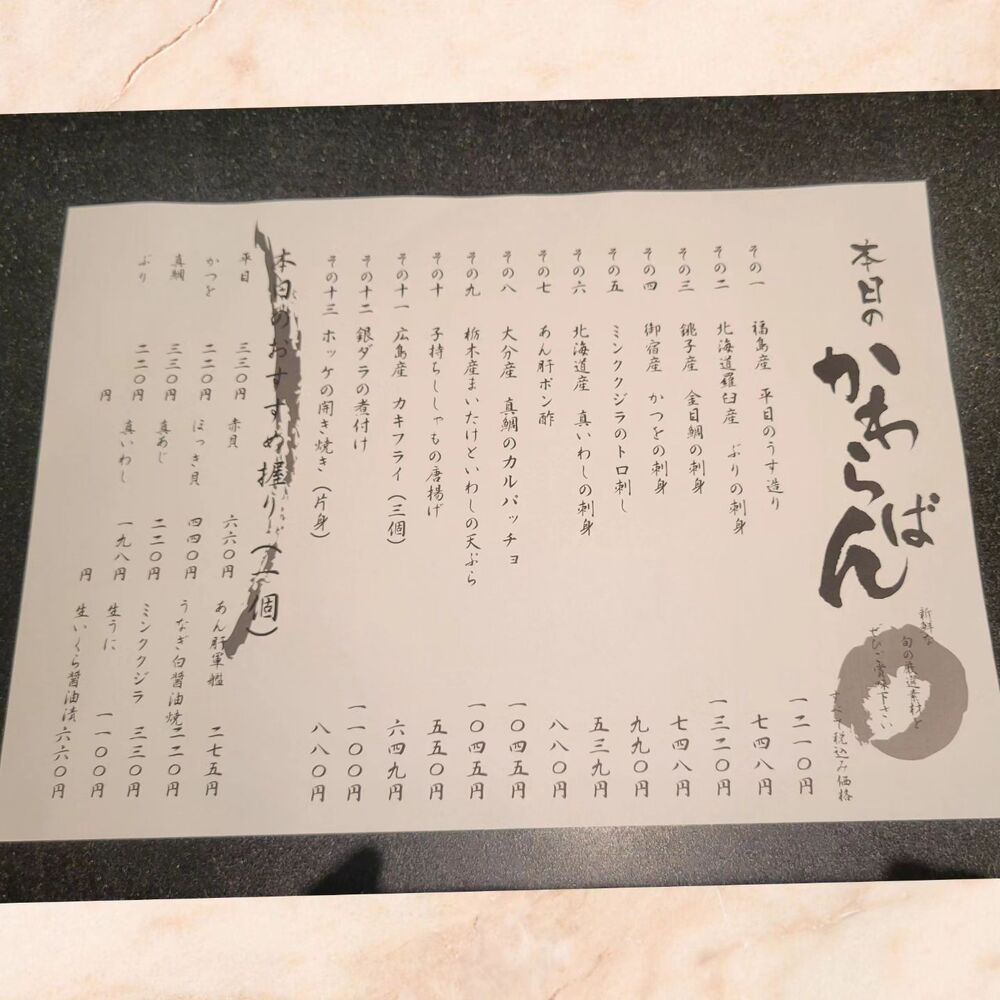 本日の
かわらばん
新鮮な
旬の厳選素材を
ぜひご賞味下さい
すべて税込み価格
その一 福島産 平目のうす造り 一二一〇円
その二 北海道羅臼産 ぶりの刺身 七四八円
その三 銚子産 金目鯛の刺身 一三二〇円
その四 御宿産 かつをの刺身 七四八円
その五 ミンククジラのトロ刺し 九九〇円
その六 北海道産 真いわしの刺身 五三九円
その七 あん肝ポン酢 八八〇円
その八 大分産 真鯛のカルパッチョ 一〇四五円
その九 栃木産まいたけといわしの天ぷら 一〇四五円
その十 子持ちししゃもの唐揚げ 五五〇円
その十一 広島産 カキフライ（三個） 六四九円
その十二 銀ダラの煮付け 一一〇〇円
その十三 ホッケの開き焼き（片身） 八八〇円
本日のおすすめ握り（一個）
平目 三三〇円 赤貝 六六〇円 あん肝軍艦 二七五円
かつを 二二〇円 ほっき貝 四四〇円 うなぎ白醤油焼 二二〇円
真鯛 三三〇円 真あじ 二二〇円 ミンククジラ 三三〇円
ぶり 二二〇円 真いわし 一九八円 生うに 一一〇〇円
円 円 生いくら醤油漬 六六〇円